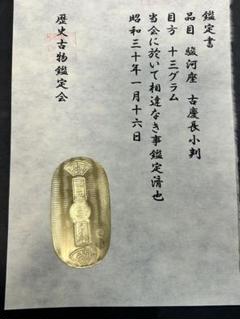 鑑定書
品目 駿河座 古慶長小判
目方 十三グラム
当会に於いて相違なき事鑑定済也
昭和三十年一月十六日
歴史古物鑑定会